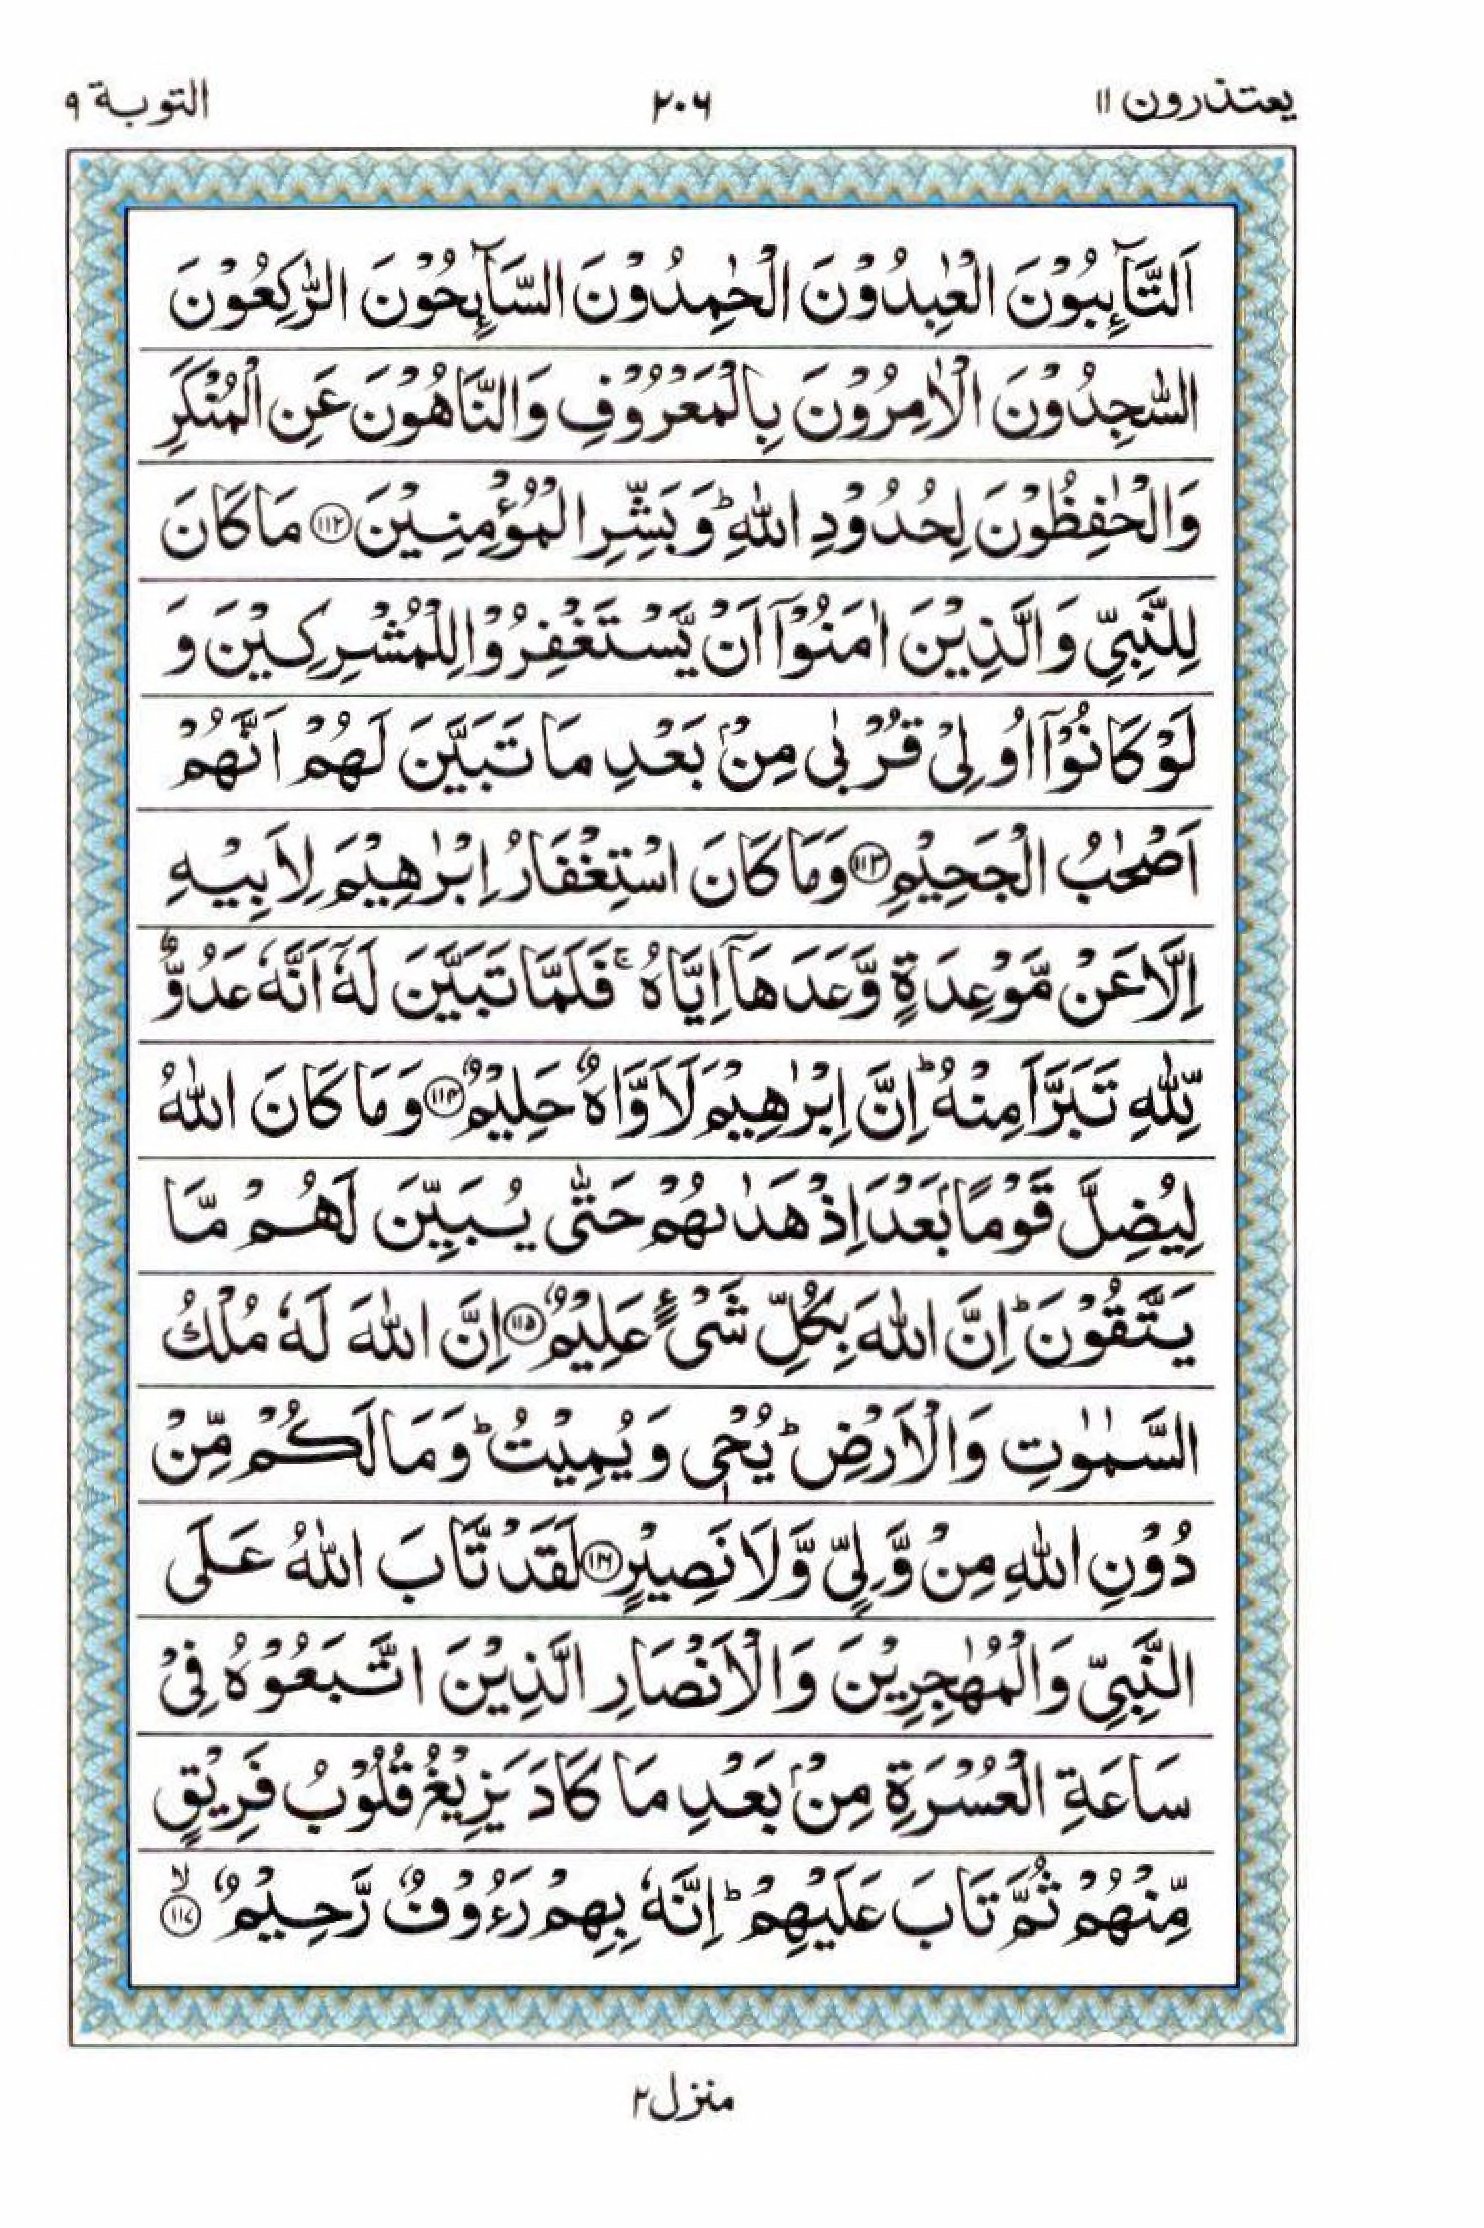 يعتذرون ١١ ٢٠٦ التوبة ٩
اَلتَّآئِبُوْنَ الْعٰبِدُوْنَ الْحٰمِدُوْنَ السَّآئِحُوْنَ الرّٰكِعُوْنَ
السّٰجِدُوْنَ الْاٰمِرُوْنَ بِالْمَعْرُوْفِ وَالنَّاهُوْنَ عَنِ الْمُنْكَرِ
وَالْحٰفِظُوْنَ لِحُدُوْدِ اللّٰهِ ؕ وَبَشِّرِ الْمُؤْمِنِيْنَ ﴿١١٢﴾ مَا كَانَ
لِلنَّبِيِّ وَالَّذِيْنَ اٰمَنُوْۤا اَنْ يَّسْتَغْفِرُوْا لِلْمُشْرِكِيْنَ وَ
لَوْ كَانُوْۤا اُولِيْ قُرْبٰى مِنْۢ بَعْدِ مَا تَبَيَّنَ لَهُمْ اَنَّهُمْ
اَصْحٰبُ الْجَحِيْمِ ﴿١١٣﴾ وَمَا كَانَ اسْتِغْفَارُ اِبْرٰهِيْمَ لِاَبِيْهِ
اِلَّا عَنْ مَّوْعِدَةٍ وَّعَدَهَاۤ اِيَّاهُ ۚ فَلَمَّا تَبَيَّنَ لَهٗۤ اَنَّهٗ عَدُوٌّ
لِّلّٰهِ تَبَرَّاَ مِنْهُ ؕ اِنَّ اِبْرٰهِيْمَ لَاَوَّاهٌ حَلِيْمٌ ﴿١١٤﴾ وَمَا كَانَ اللّٰهُ
لِيُضِلَّ قَوْمًۢا بَعْدَ اِذْ هَدٰىهُمْ حَتّٰى يُبَيِّنَ لَهُمْ مَّا
يَتَّقُوْنَ ؕ اِنَّ اللّٰهَ بِكُلِّ شَيْءٍ عَلِيْمٌ ﴿١١٥﴾ اِنَّ اللّٰهَ لَهٗ مُلْكُ
السَّمٰوٰتِ وَالْاَرْضِ ؕ يُحْيٖ وَيُمِيْتُ ؕ وَمَا لَكُمْ مِّنْ
دُوْنِ اللّٰهِ مِنْ وَّلِيٍّ وَّلَا نَصِيْرٍ ﴿١١٦﴾ لَقَدْ تَّابَ اللّٰهُ عَلَى
النَّبِيِّ وَالْمُهٰجِرِيْنَ وَالْاَنْصَارِ الَّذِيْنَ اتَّبَعُوْهُ فِيْ
سَاعَةِ الْعُسْرَةِ مِنْۢ بَعْدِ مَا كَادَ يَزِيْغُ قُلُوْبُ فَرِيْقٍ
مِّنْهُمْ ثُمَّ تَابَ عَلَيْهِمْ ؕ اِنَّهٗ بِهِمْ رَءُوْفٌ رَّحِيْمٌ ﴿١١٧﴾ ۙ
منزل ٢